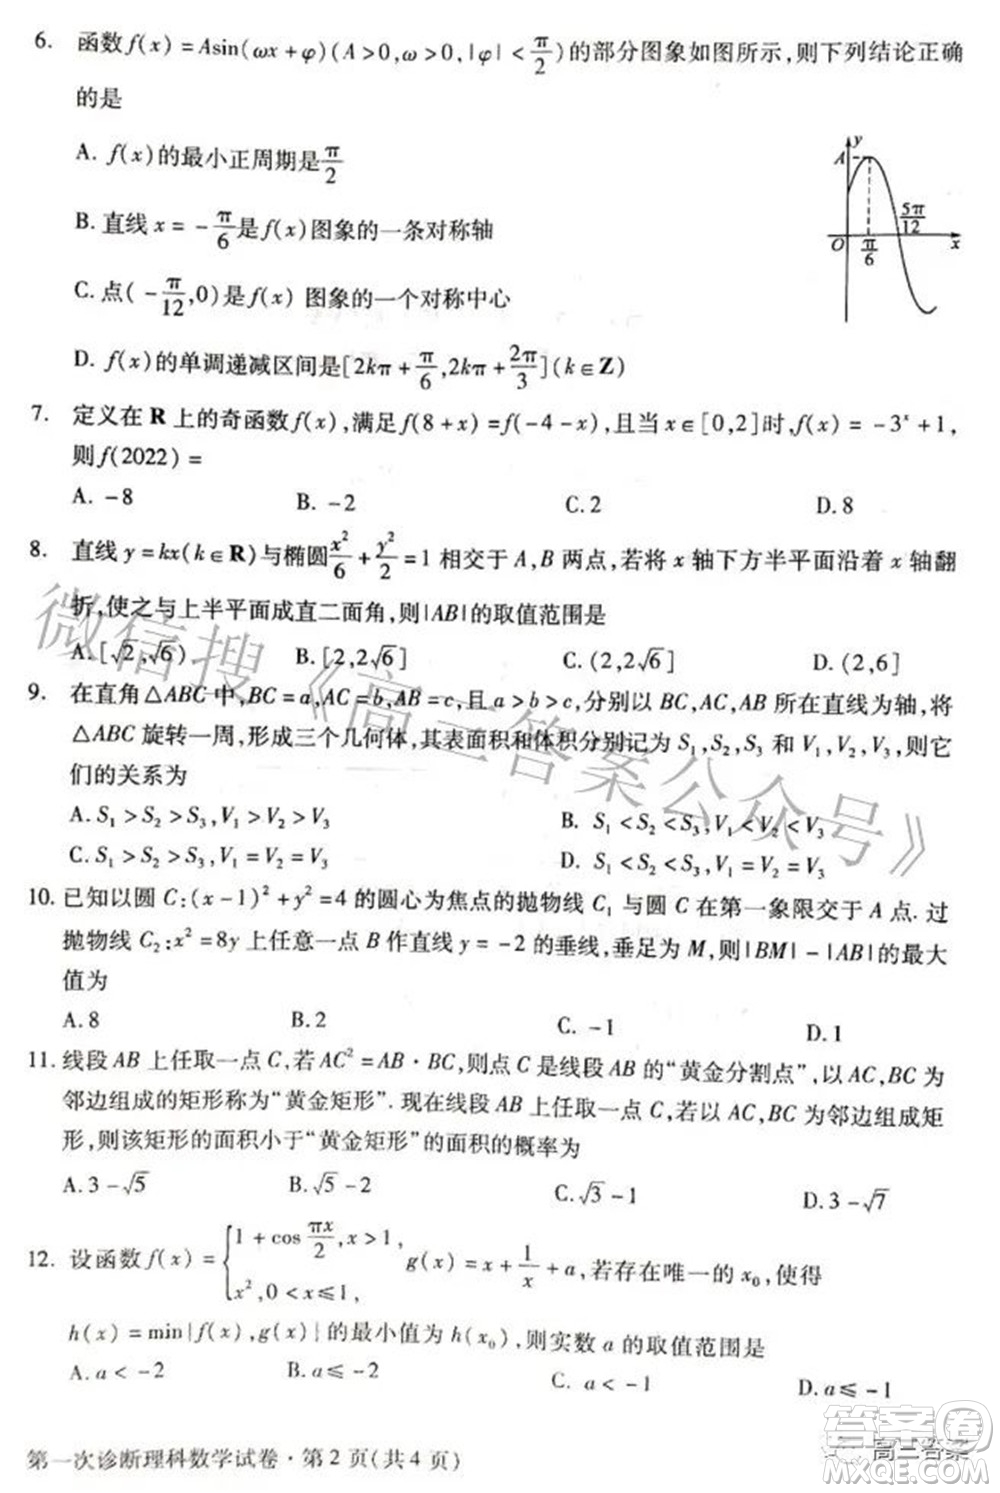 6. 函数f(x)=Asin(ωx+φ)(A>0,ω>0,|φ|<π/2)的部分图象如图所示,则下列结论正确
的是
A. f(x)的最小正周期是π/2
B. 直线x=-π/6是f(x)图象的一条对称轴
C. 点(-π/12,0)是f(x) 图象的一个对称中心
D. f(x)的单调递减区间是[2kπ+π/6,2kπ+2π/3](k∈Z)
y
A
5π/12
O π/6 x
7. 定义在 R 上的奇函数f(x),满足f(8+x)=f(-4-x),且当x∈[0,2]时,f(x)=-3^x+1,
则f(2022)=
A. -8 B. -2 C. 2 D. 8
8. 直线y=kx(k∈R)与椭圆x²/6+y²/2=1 相交于A,B 两点,若将 x 轴下方半平面沿着 x 轴翻
折,使之与上半平面成直二面角,则|AB|的取值范围是
A. [√2,√6) B. [2,2√6] C. (2,2√6] D. (2,6]
9. 在直角△ABC 中,BC=a,AC=b,AB=c,且a>b>c,分别以 BC,AC,AB 所在直线为轴,将
△ABC 旋转一周,形成三个几何体,其表面积和体积分别记为 S₁,S₂,S₃ 和 V₁,V₂,V₃,则它
们的关系为
A. S₁>S₂>S₃,V₁>V₂>V₃ B. S₁<S₂<S₃,V₁<V₂<V₃
C. S₁>S₂>S₃,V₁=V₂=V₃ D. S₁<S₂<S₃,V₁=V₂=V₃
10. 已知以圆 C:(x-1)²+y²=4 的圆心为焦点的抛物线 C₁ 与圆 C 在第一象限交于 A 点. 过
抛物线 C₂:x²=8y 上任意一点 B 作直线 y=-2 的垂线,垂足为 M,则|BM|-|AB|的最大
值为
A. 8 B. 2 C. -1 D. 1
11. 线段 AB 上任取一点 C,若 AC²=AB·BC,则点 C 是线段 AB 的“黄金分割点”,以 AC,BC 为
邻边组成的矩形称为“黄金矩形”. 现在线段 AB 上任取一点 C,以 AC,BC 为邻边组成矩
形,则该矩形的面积小于“黄金矩形”的面积的概率为
A. 3-√5 B. √5-2 C. √3-1 D. 3-√7
12. 设函数f(x)={1+cos πx/2,x>1, x²,0<x≤1, g(x)=x+1/x+a,若存在唯一的 x₀,使得
h(x)=min{f(x),g(x)}的最小值为 h(x₀),则实数 a 的取值范围是
A. a<-2 B. a≤-2 C. a<-1 D. a≤-1
第一次诊断理科数学试卷·第 2 页(共 4 页)
微信搜《高三答案公众号》
高三答案
答案圈
MXQE.COM